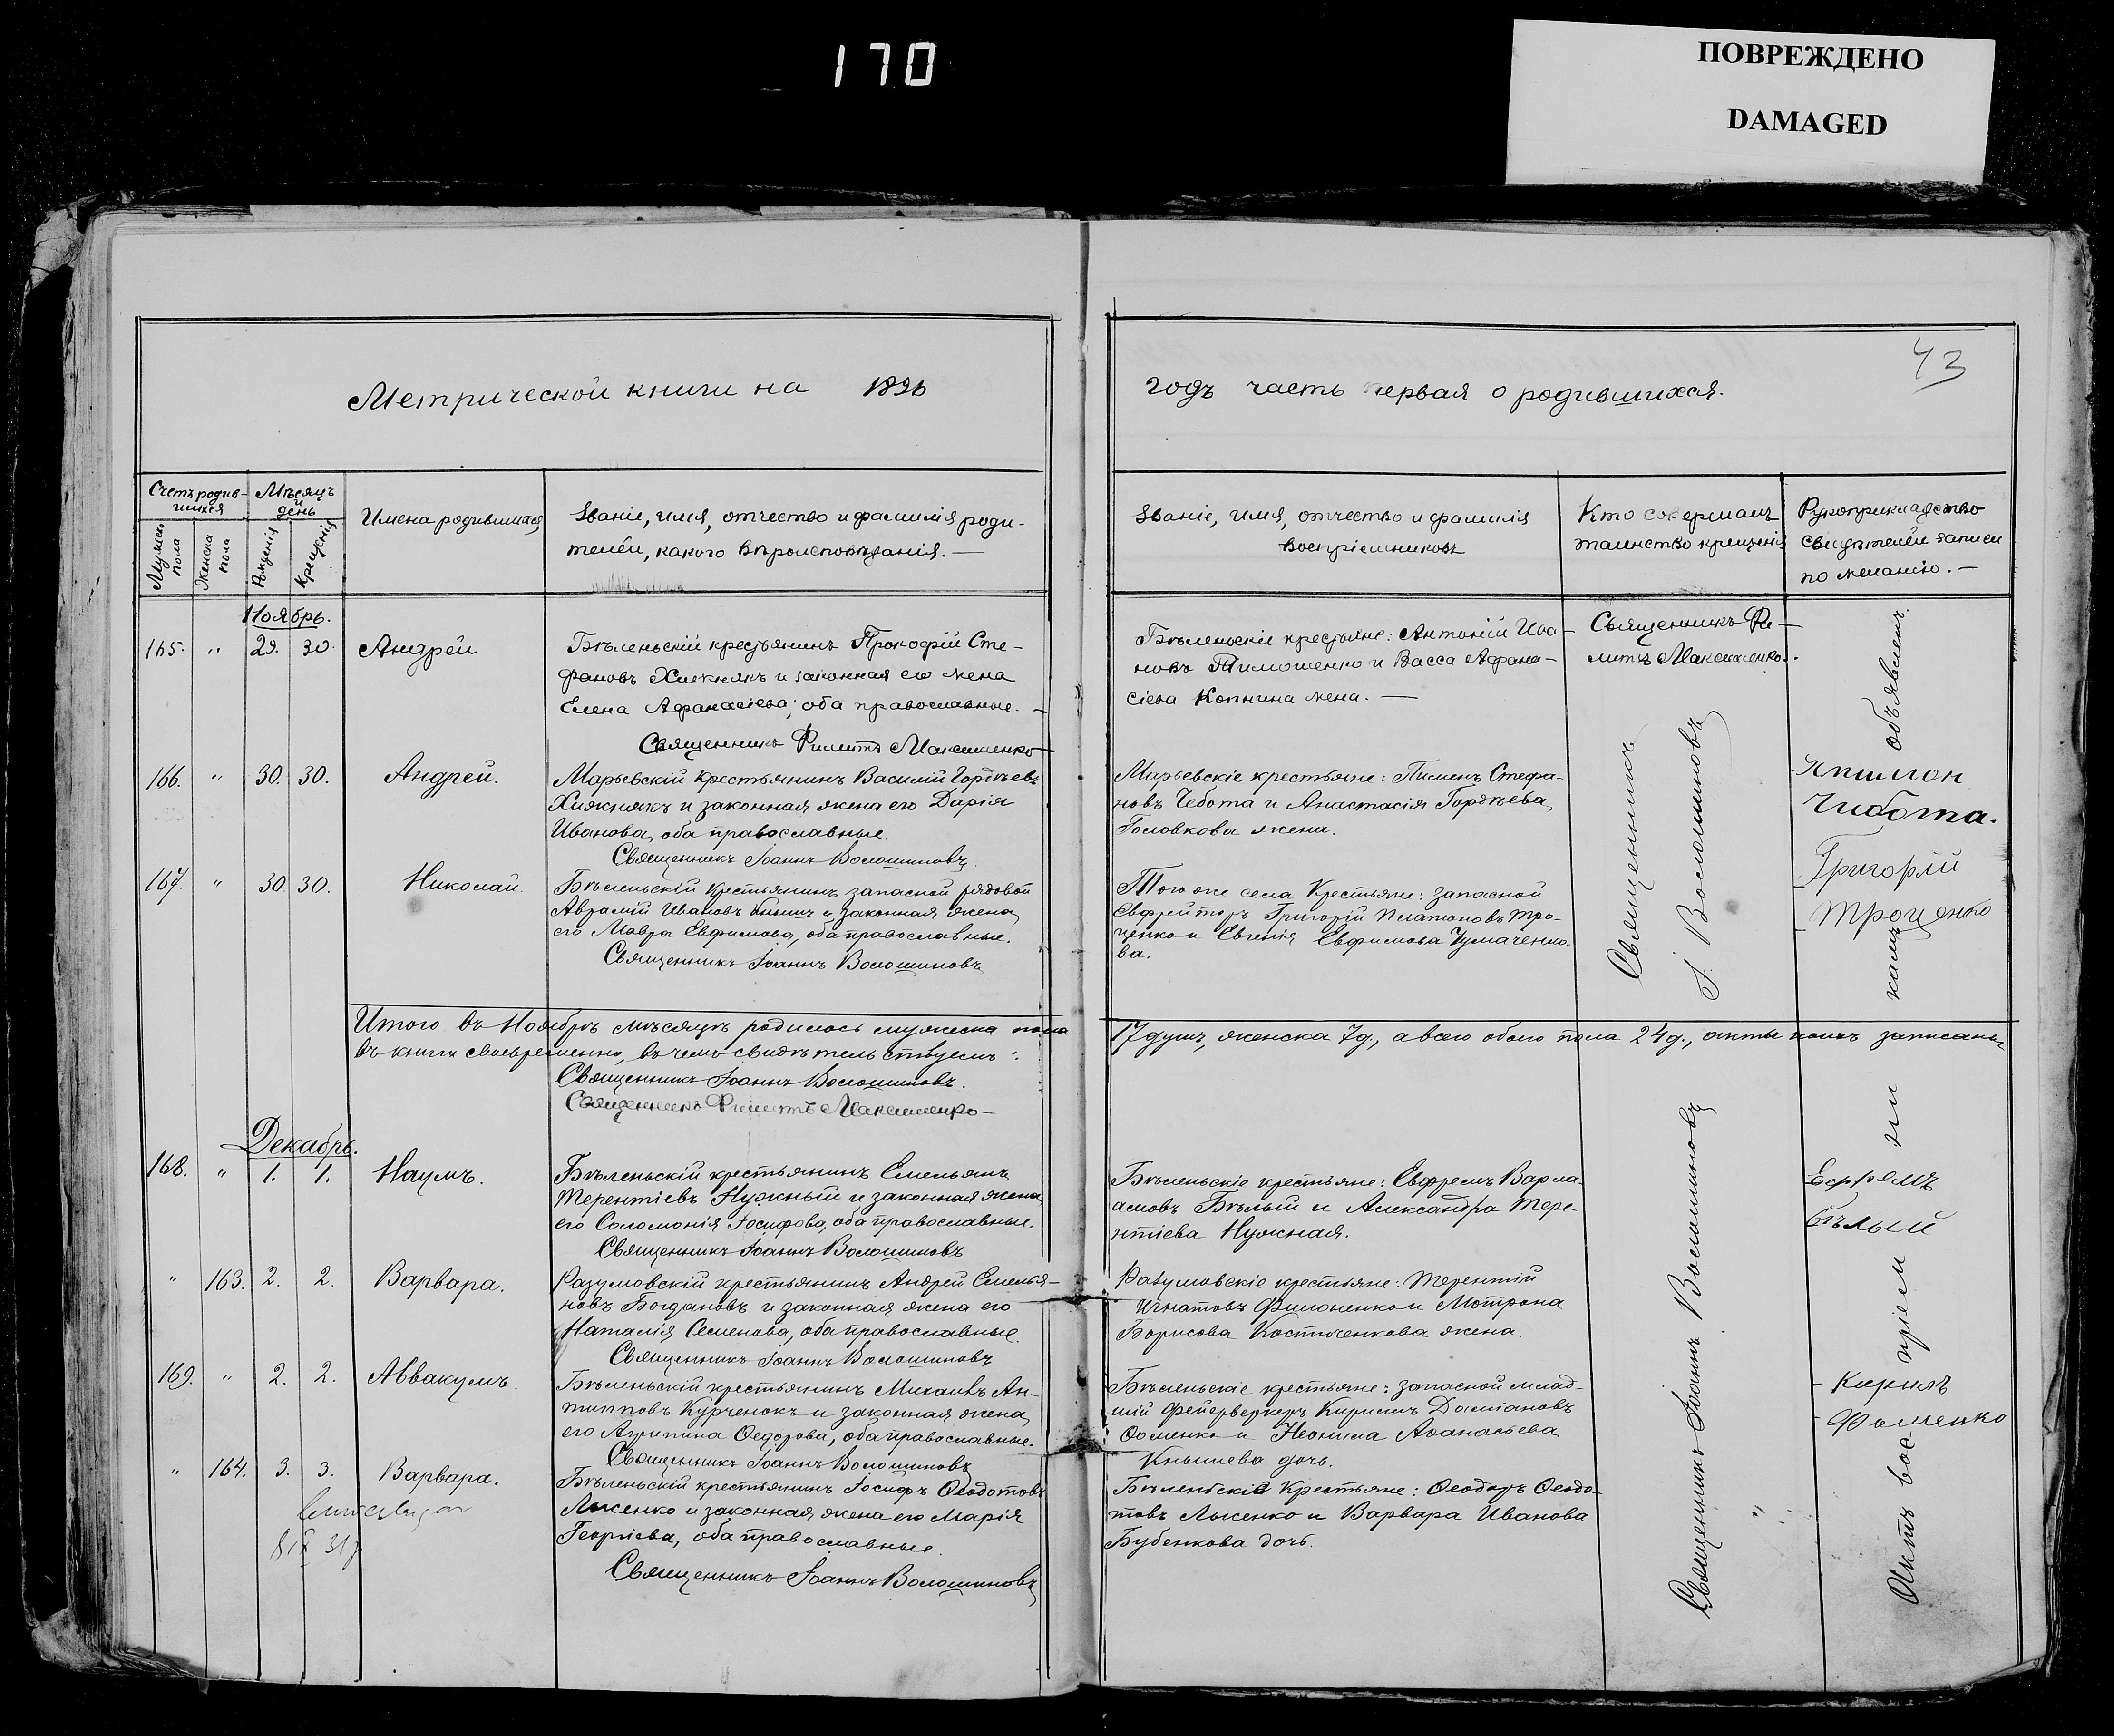 170
ПОВРЕЖДЕНО
DAMAGED
43
Метрической книги на 1896
годъ часть первая о родившихся.
Счетъ родив-
шихся
Мѣсяцъ
и
день
Мужеск
пола
Женска
пола
Рожденія
Крещенія
Имена родившихся
Званіе, имя, отчество и фамилія роди-
телей, какого вѣроисповѣданія. —
Званіе, имя, отчество и фамилія
воспріемниковъ
Кто совершалъ
таинство крещенія
Рукоприкладство
свидѣтелей записи
по желанію. —
Ноябрь.
165. " 29. 30. Андрей
Бѣленьскій крестьянинъ Прокофій Сте-
фановъ Хижнякъ и законная его жена
Елена Афанасіева; оба православные. —
Священникъ Филиппъ Максименко
Бѣленьскіе крестьяне: Антоній Ива-
новъ Тимошенко и Васса Афана-
сіева Копнина жена. —
Священникъ Фи-
липпъ Максименко.
166. " 30. 30. Андрей.
Марьевскій крестьянинъ Василій Гордѣевъ
Хижнякъ и законная жена его Дарія
Иванова, оба православные.
Священникъ Іоаннъ Волошиновъ
Марьевскіе крестьяне: Пименъ Стефа-
новъ Чебота и Анастасія Гордѣева,
Головкова жена.
Чибота.
167. " 30. 30. Николай.
Бѣленьскій крестьянинъ запасной рядовой
Аврамій Ивановъ Кнышъ и законная жена
его Мавра Евфимова, оба православные.
Священникъ Іоаннъ Волошиновъ
Того же села Крестьяне: запасной
Ефрейторъ Григорій Платоновъ Тро-
ценко и Евгенія Евфимова Чумаченко-
ва.
Григорій
Троценко
Священникъ
І. Волошиновъ
Итого въ Ноябрѣ мѣсяцѣ родилось мужеска пола
17 душъ, женска 7 д., а всего обоего пола 24 д., акты коихъ записаны
въ книги своевременно, въ чемъ свидѣтельствуемъ:
Священникъ Іоаннъ Волошиновъ.
Священникъ Филиппъ Максименко —
Декабрь.
168. " 1. 1. Наумъ.
Бѣленьскій крестьянинъ Емельянъ
Терентіевъ Нужный и законная жена
его Соломонія Іосифова, оба православные.
Священникъ Іоаннъ Волошиновъ
Бѣленьскіе крестьяне: Евфремъ Варла-
амовъ Бѣлый и Александра Тере-
нтіева Нужная.
Ефремъ
Бѣлый
" 163. 2. 2. Варвара.
Разумовскій крестьянинъ Андрей Емелья-
новъ Богдановъ и законная жена его
Наталія Семенова, оба православные.
Священникъ Іоаннъ Волошиновъ
Разумовскіе крестьяне: Терентій
Игнатовъ Филоненко и Мотрона
Борисова Костюченкова жена.
169. " 2. 2. Аввакумъ.
Бѣленьскій крестьянинъ Михаилъ Ан-
типповъ Курченокъ и законная жена
его Агрипина Ѳедорова, оба православные.
Священникъ Іоаннъ Волошиновъ
Бѣленьскіе крестьяне: запасной млад-
шій фейерверкеръ Кириллъ Даміановъ
Ѳоменко и Неонила Аѳанасьева
Кнышева дочь.
Кирилъ
Фоменко
" 164. 3. 3. Варвара.
Бѣленьскій крестьянинъ Іосифъ Ѳеодотовъ
Лысенко и законная жена его Марія
Георгіева, оба православные.
Священникъ Іоаннъ Волошиновъ
Бѣленьскіе Крестьяне: Ѳеодоръ Ѳеодо-
товъ Лысенко и Варвара Иванова
Бубенкова дочь.
Священникъ Іоаннъ Волошиновъ
Актъ воспріемникамъ объявленъ.